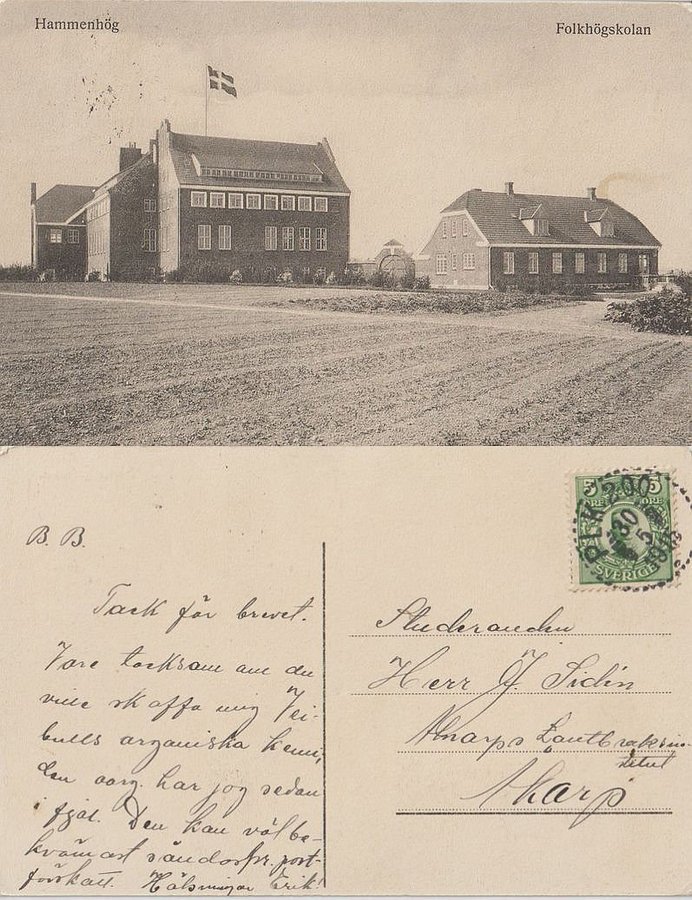 Hammenhög
Folkhögskolan
B. B.
Tack för brevet.
Vore tacksam om du
ville skaffa mig Vei-
bulls organiska kemi,
den oorg. har jog sedan
i fjol. Den kan väl be-
kvämast sändas pr. post-
förskott. Hälsningar Erik!
5 5
ÖRE ÖRE
SVERIGE
PLK 200
30 5
Studeranden
Herr J. Sidin
Alnarps Lantbruksin-
stitut
Åkarp